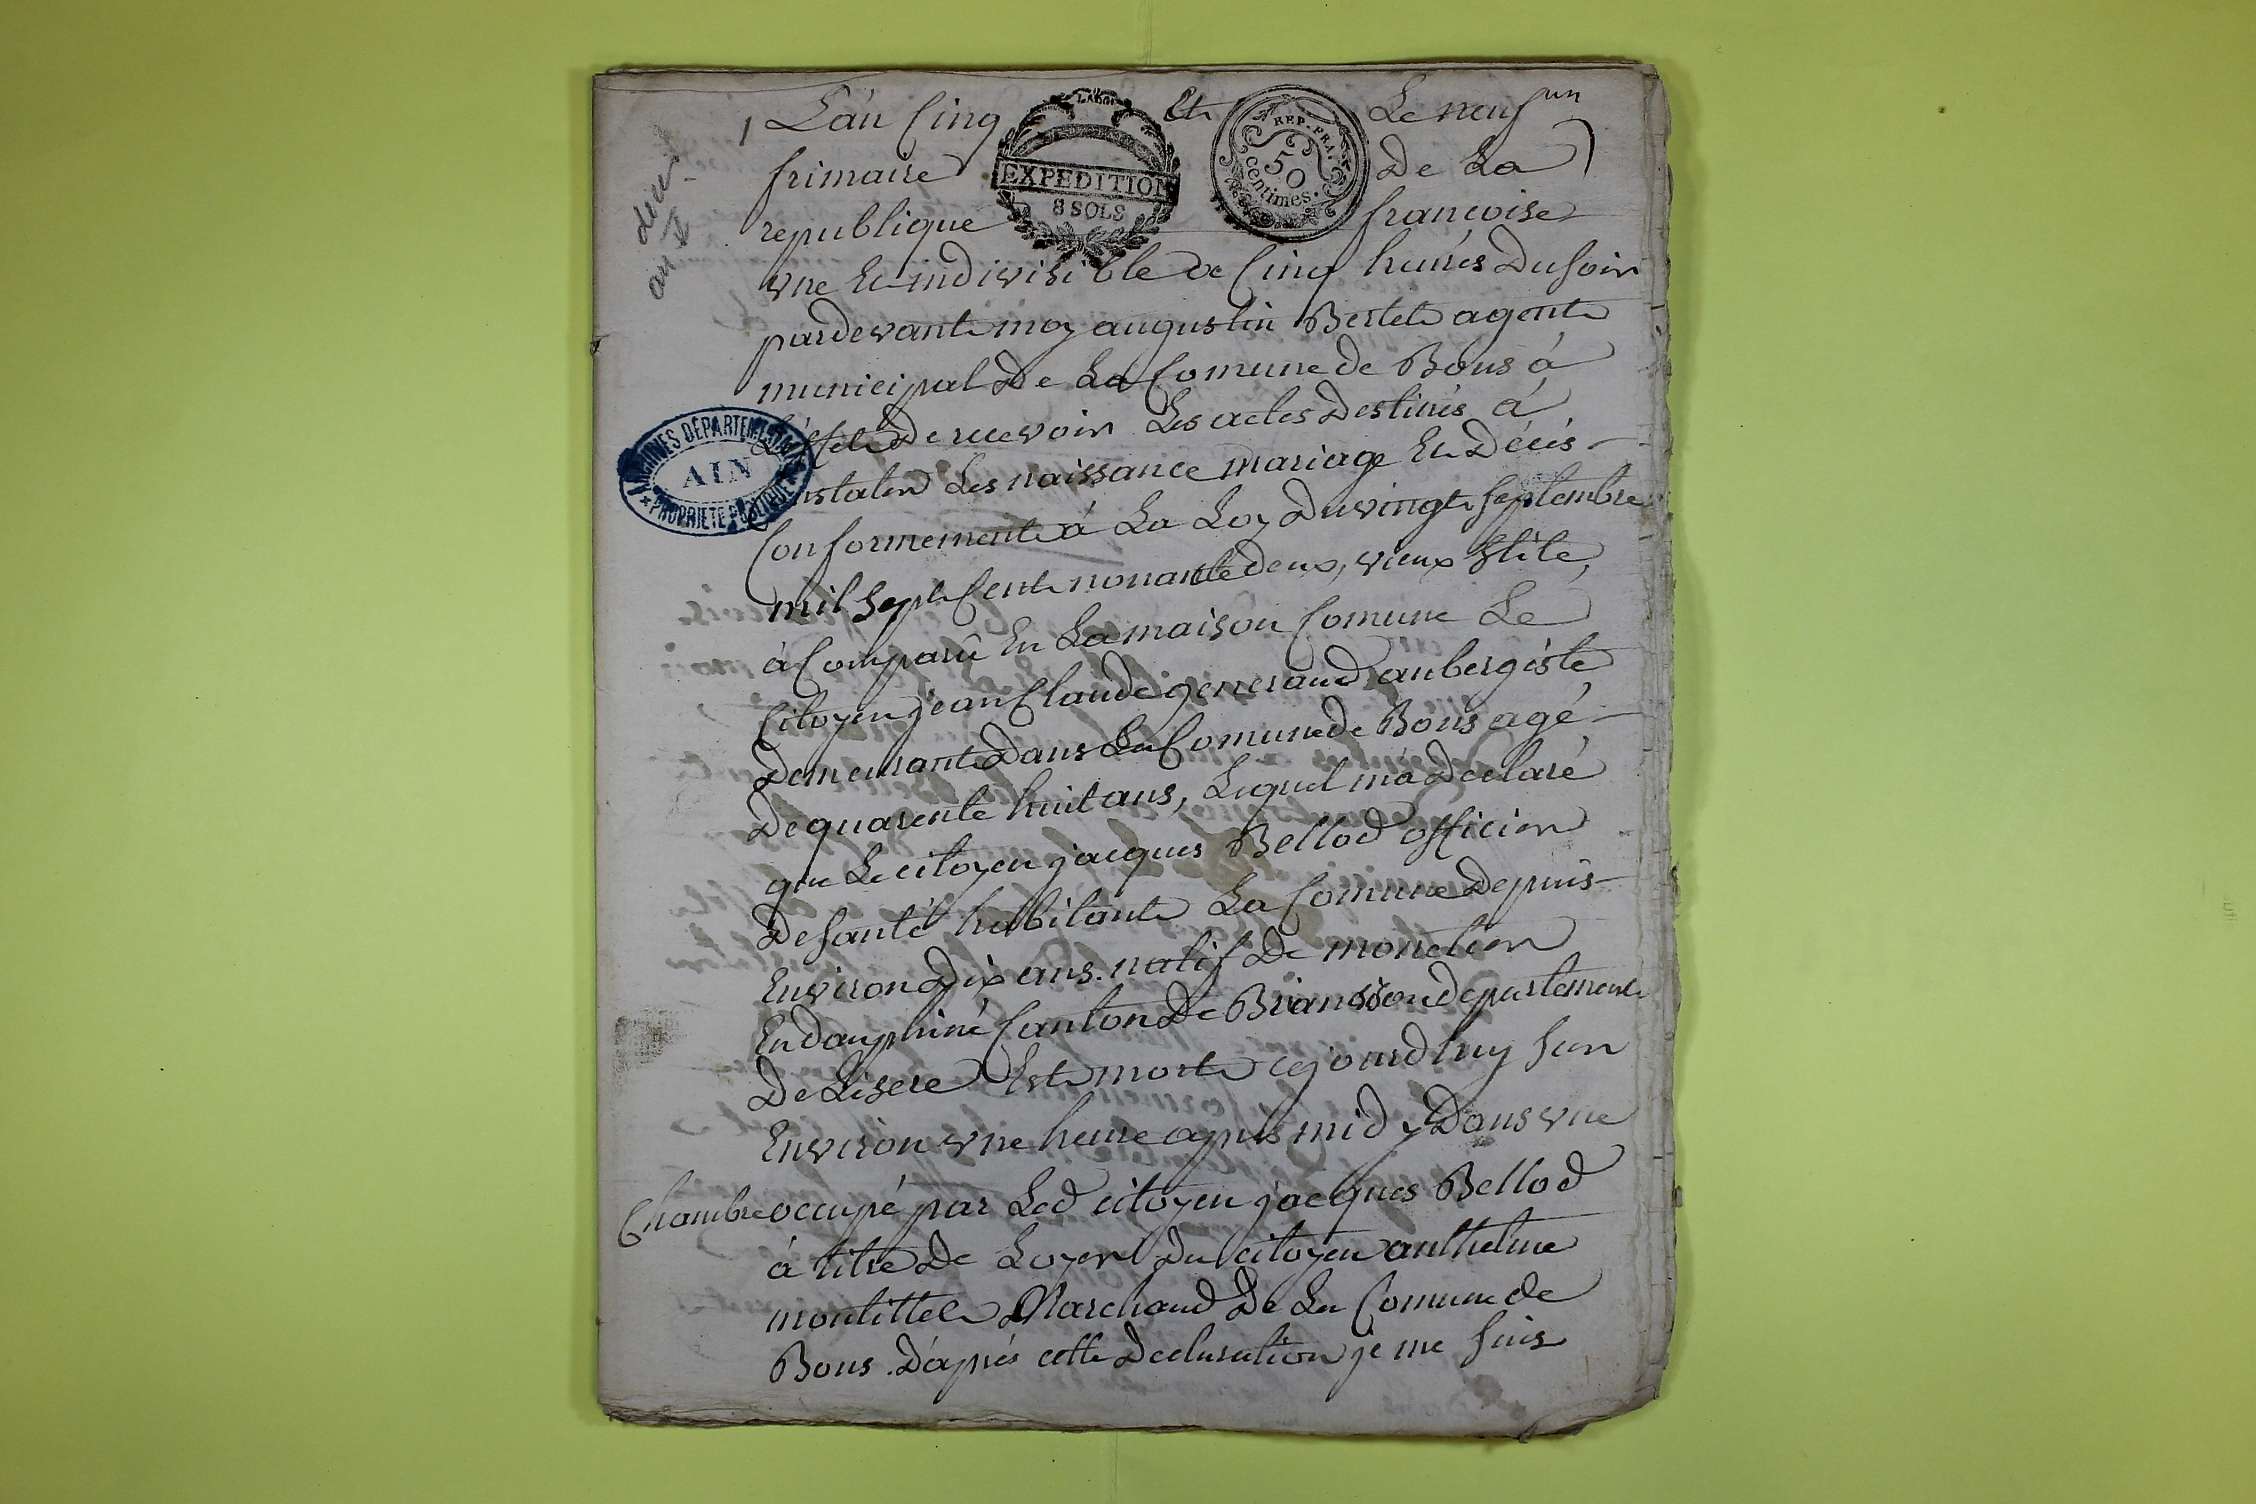 un
1 L'an Cinq Et Le neuf
frimaire De La
republique françoise
LABOR
EXPEDITION
8 SOLS
REP. FRA.
50
centimes.
deces
an 5
vne Et indivisible de Cinq heures Du soir
pardevant moy augustin Bertet agent
municipal De La Comune de Bons à
L'effet De recevoir Les actes Destinés à
Constater Les naissance mariage Et Décès
Conformement à La Loy Du vingt Septembre
mil Sept Cent nonante deux, vieux stile,
à Comparû En La maison Comune Le
Citoyen jean Claude generaud aubergiste
Demeurant Dans La Comune de Bons agé
De quarente huit ans, Lequel m'a Declaré
que Le citoyen jacques Bellod officier
De santé habitant La Comune Depuis
Environ Dix ans. natif De monetier
En dauphiné Canton De Briansson departement
De Lisere Est mort cejourdhuy sur
Environ vne heure apres midy Dans vne
Chambre occupé par Led citoyen jacques Bellod
à titre De Loyer Du citoyen anthelme
montillet Marchand De La Comune de
Bons. D'après cette Declaration je me suis
ARCHIVES DÉPARTEMENTALES
AIN
PROPRIETE PUBLIQUE